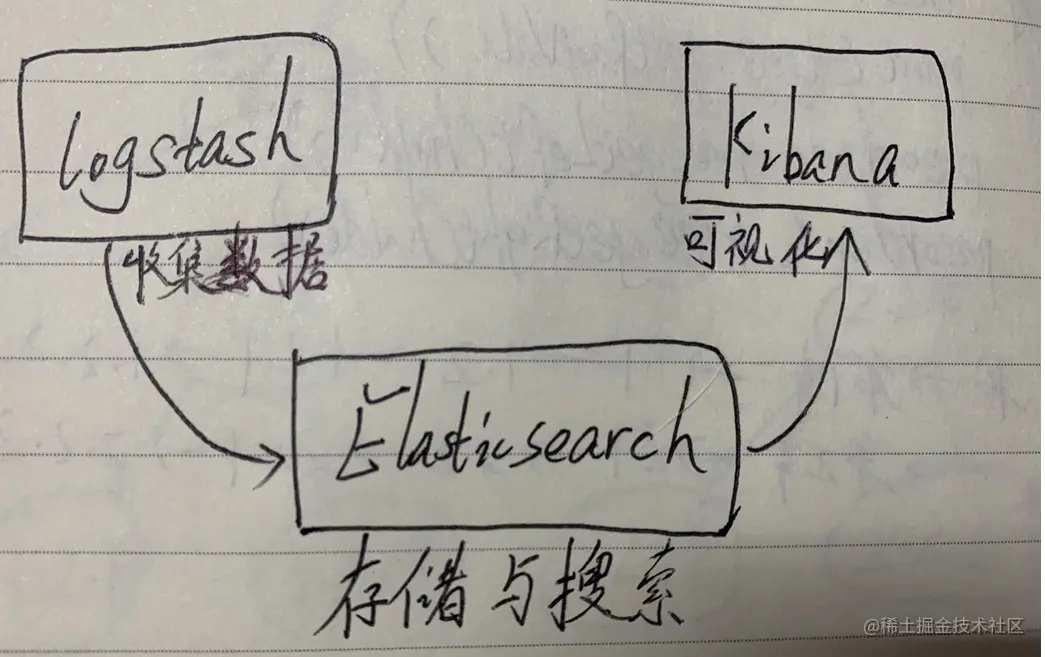 Logstash
Kibana
收集数据
可视化
Elasticsearch
存储与搜索
@稀土掘金技术社区